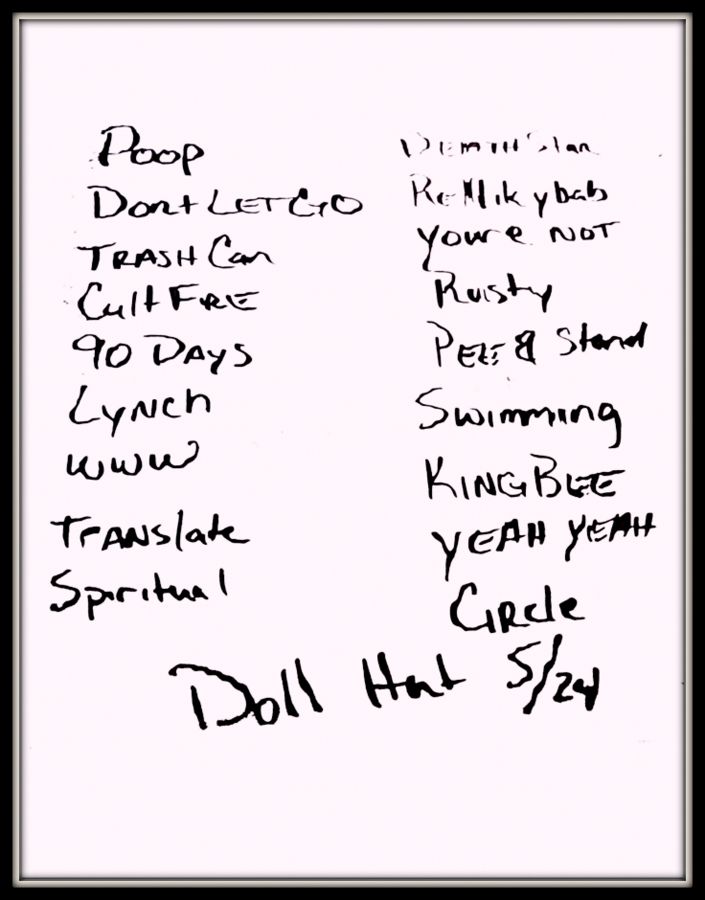 Poop
Dont LET GO
TRASH Can
Cult FIRE
90 DAYS
Lynch
WWW
TRANSlate
Spiritual
Youre NOT
Rusty
PEE B Stand
Swimming
KING BEE
YEAH YEAH
CIRcle
Doll Hut 5/24